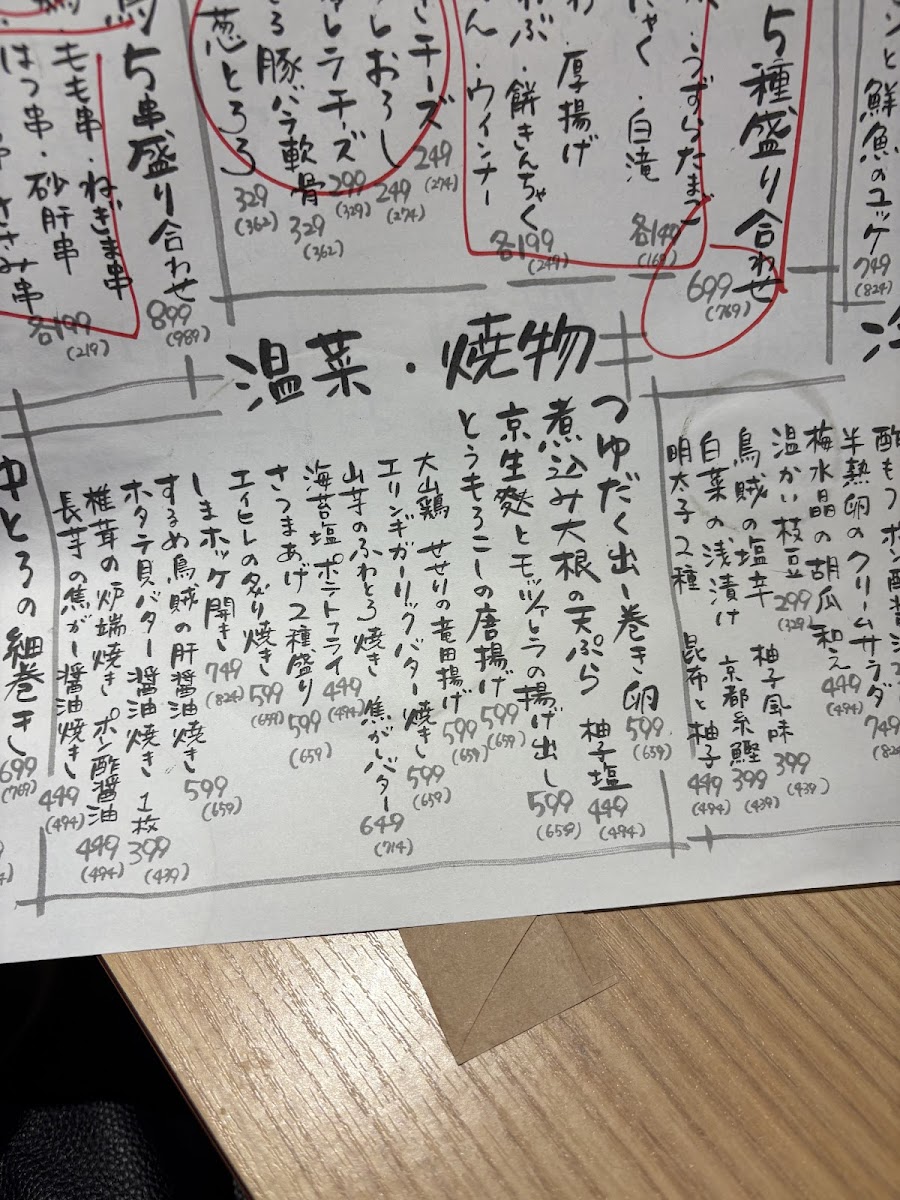 鮮魚のユッケ
749
(824)
5種盛り合わせ
699
(769)
・うずらたまご
・白滝
各149
厚揚げ
・餅きんちゃく
・ウインナー
各199
(249)
チーズ
249
(274)
しおろし
249
(274)
チーズ
299
(329)
豚バラ軟骨
329
(362)
葱とろろ
329
(362)
5串盛り合わせ
899
(989)
もも串・ねぎま串
はつ串・砂肝串
ささみ串
各199
(219)
半熟卵のクリームサラダ
749
梅水晶の胡瓜和え
449
(494)
温かい枝豆
299
(329)
烏賊の塩辛 柚子風味
399
(439)
白菜の浅漬け 京都糸鰹
399
(439)
明太子2種 昆布と柚子
449
(494)
温菜・焼物
つゆだく出し巻き卵
599
(659)
煮込み大根の天ぷら 柚子塩
449
(494)
京生麩とモッツァレラの揚げ出し
599
(659)
とうもろこしの唐揚げ
599
(659)
大山鶏 せせりの竜田揚げ
599
(659)
エリンギガーリックバター焼き
599
(659)
山芋のふわとろ焼き 焦がしバター
649
(714)
海苔塩ポテトフライ
449
(494)
さつまあげ2種盛り
599
(659)
エイヒレの炙り焼き
599
(659)
しまホッケ開き
749
(824)
するめ烏賊の肝醤油焼き
599
(659)
ホタテ貝バター醤油焼き 1枚
399
(439)
椎茸の炉端焼き ポン酢醤油
449
(494)
長芋の焦がし醤油焼き
449
(494)
中とろの細巻き
699
(769)